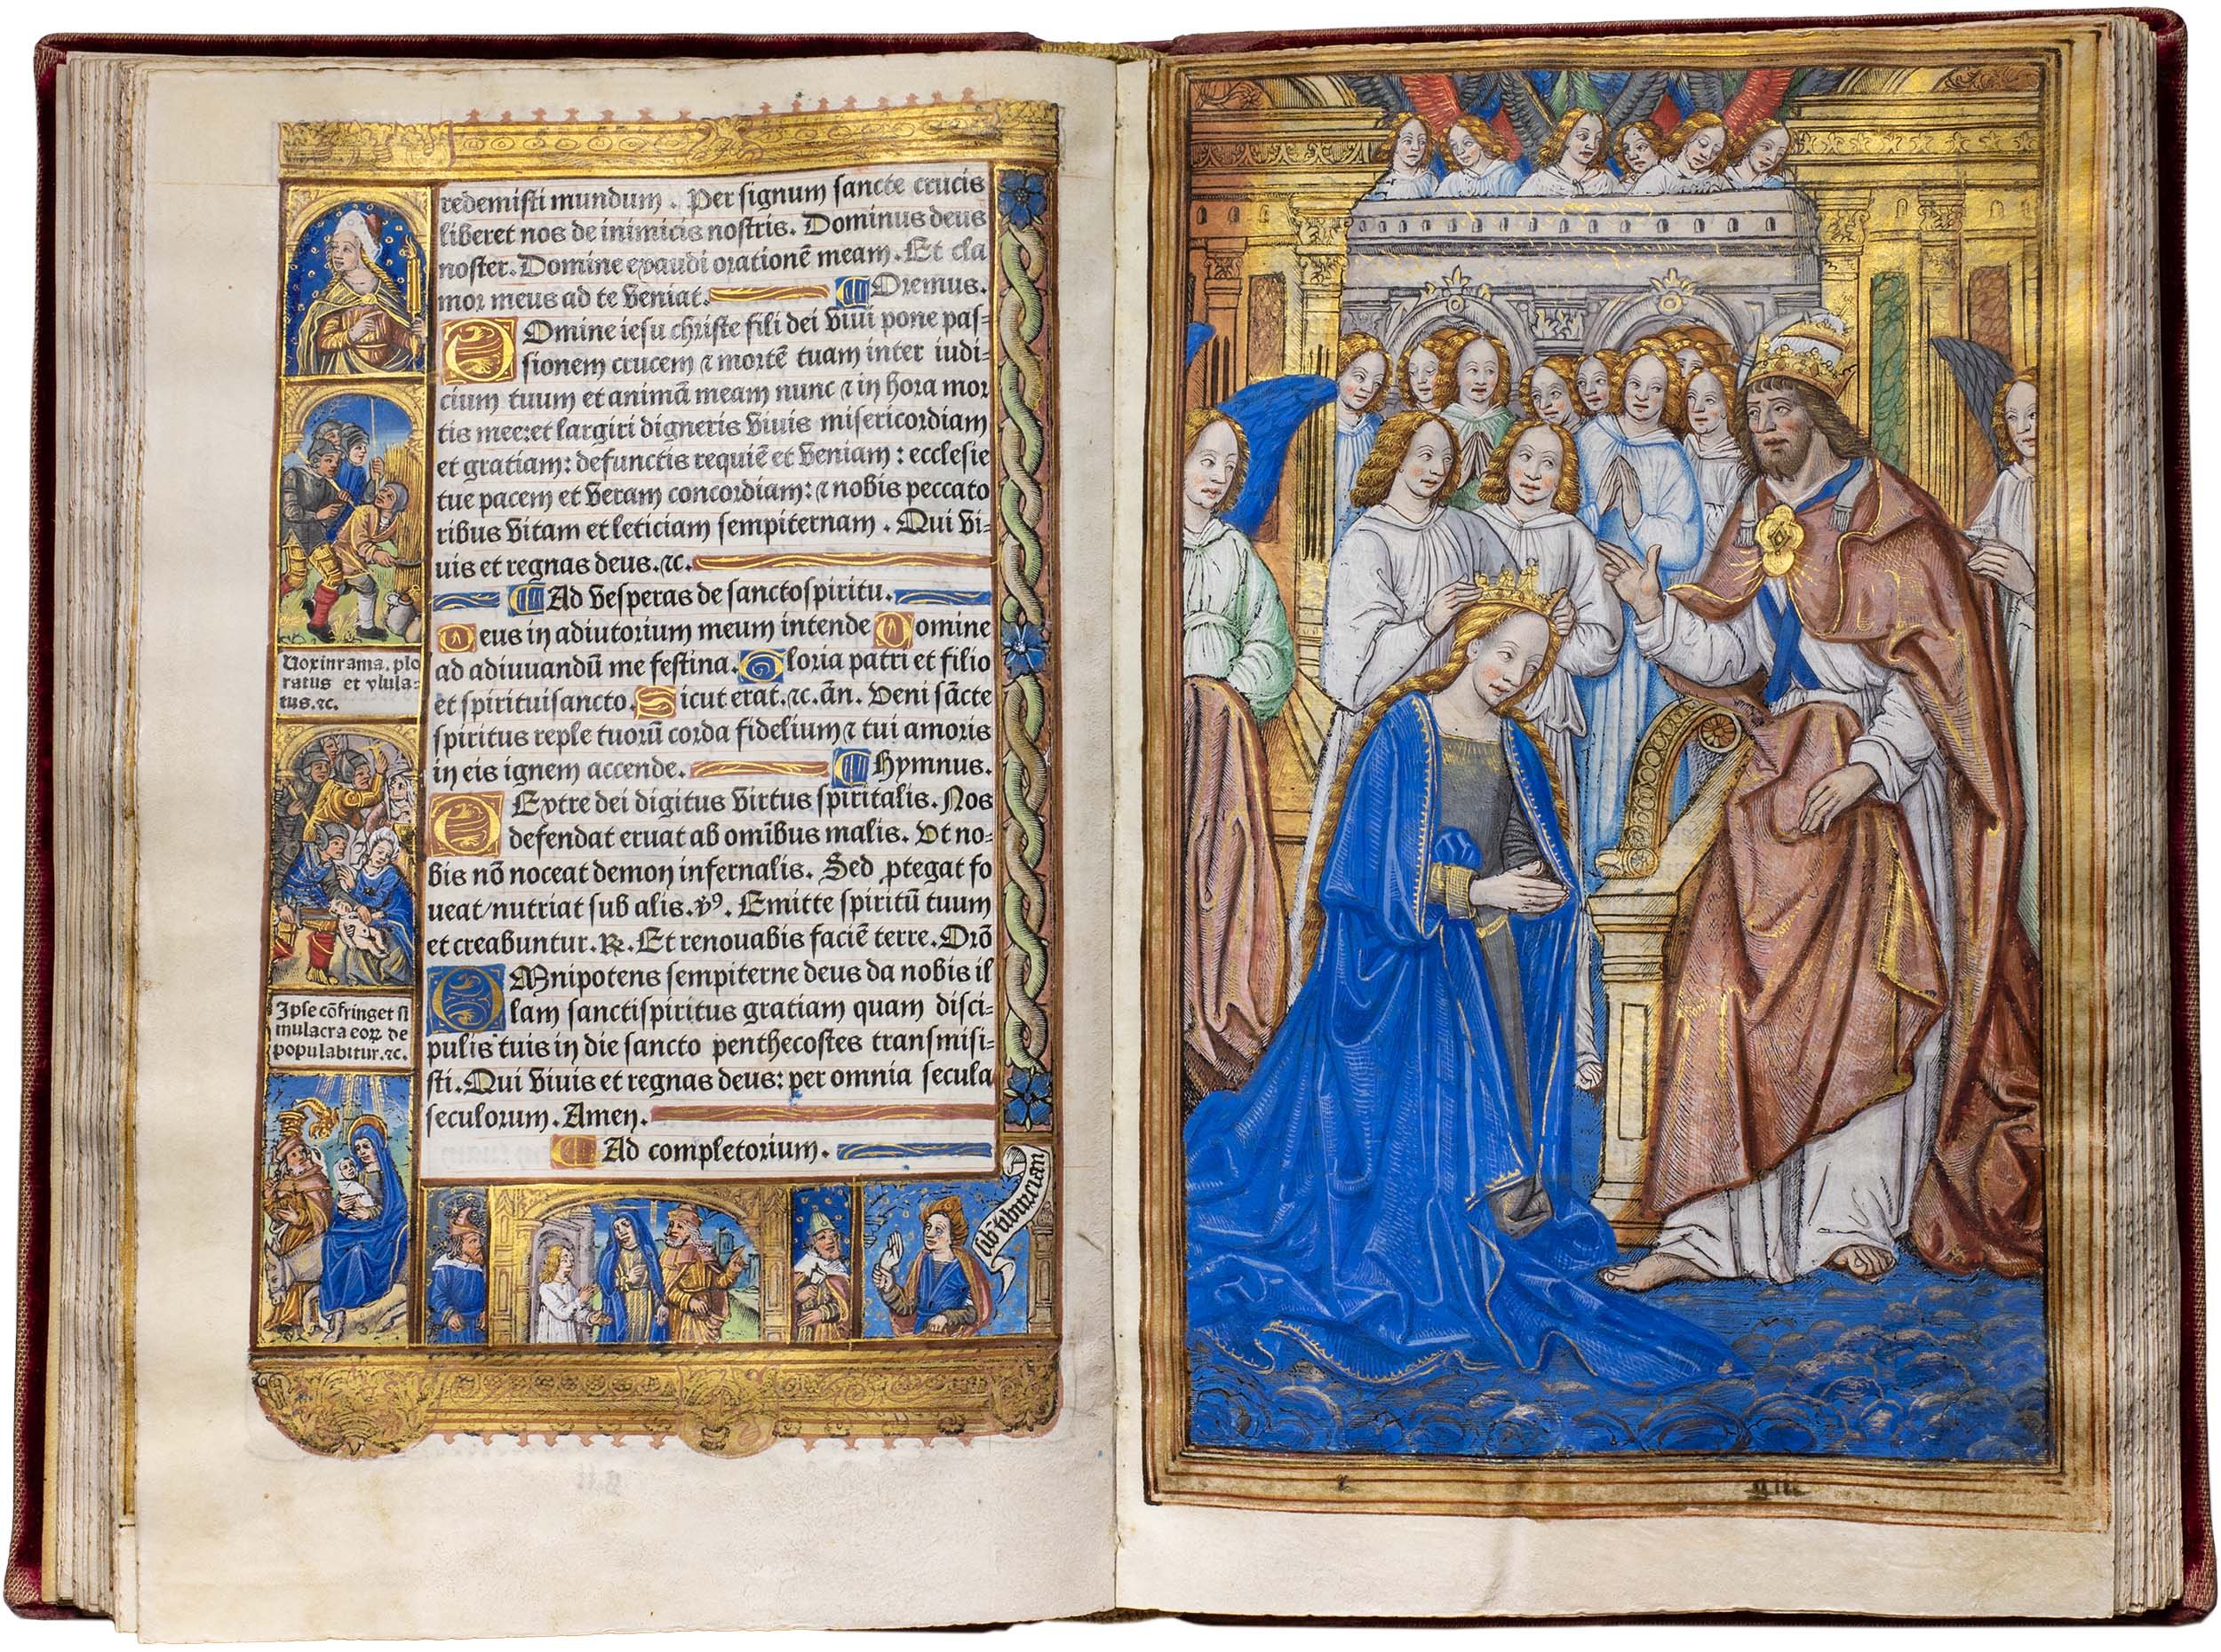 redemisti mundum. Per signum sancte crucis
liberet nos de inimicis nostris. Dominus deus
noster. Domine exaudi orationē meam. Et cla
mor meus ad te veniat. Oremus.
Omine iesu christe fili dei vivi pone pas=
sionem crucem ⁊ mortē tuam inter iudi=
cium tuum et animā meam nunc ⁊ in hora mor
tis mee: et largiri digneris vivis misericordiam
et gratiam: defunctis requiē et veniam: ecclesie
tue pacem et veram concordiam: ⁊ nobis peccato
ribus vitam et leticiam sempiternam. Qui vi=
uis et regnas deus. ⁊c.
Ad vesperas de sanctospiritu.
Deus in adiutorium meum intende Domine
ad adiuuandū me festina. Gloria patri et filio
et spirituisancto. Sicut erat. ⁊c. añ. Veni sācte
spiritus reple tuorū corda fidelium ⁊ tui amoris
in eis ignem accende. Hymnus.
Dextre dei digitus virtus spiritalis. Nos
defendat eruat ab omībus malis. Vt no=
bis nō noceat demon infernalis. Sed ꝓtegat fo
ueat/nutriat sub alis. ꝟ⁹. Emitte spiritū tuum
et creabuntur. ℞. Et renouabis faciē terre. Orō
OMnipotens sempiterne deus da nobis il
lam sanctispiritus gratiam quam disci=
pulis tuis in die sancto penthecostes transmisi=
sti. Qui viuis et regnas deus: per omnia secula
seculorum. Amen.
Ad completorium.
Vox in rama. plo
ratus et vlula=
tus. ⁊c.
Ipse cōfringet si
mulacra eoꝝ de
populabitur. ⁊c.
g iii